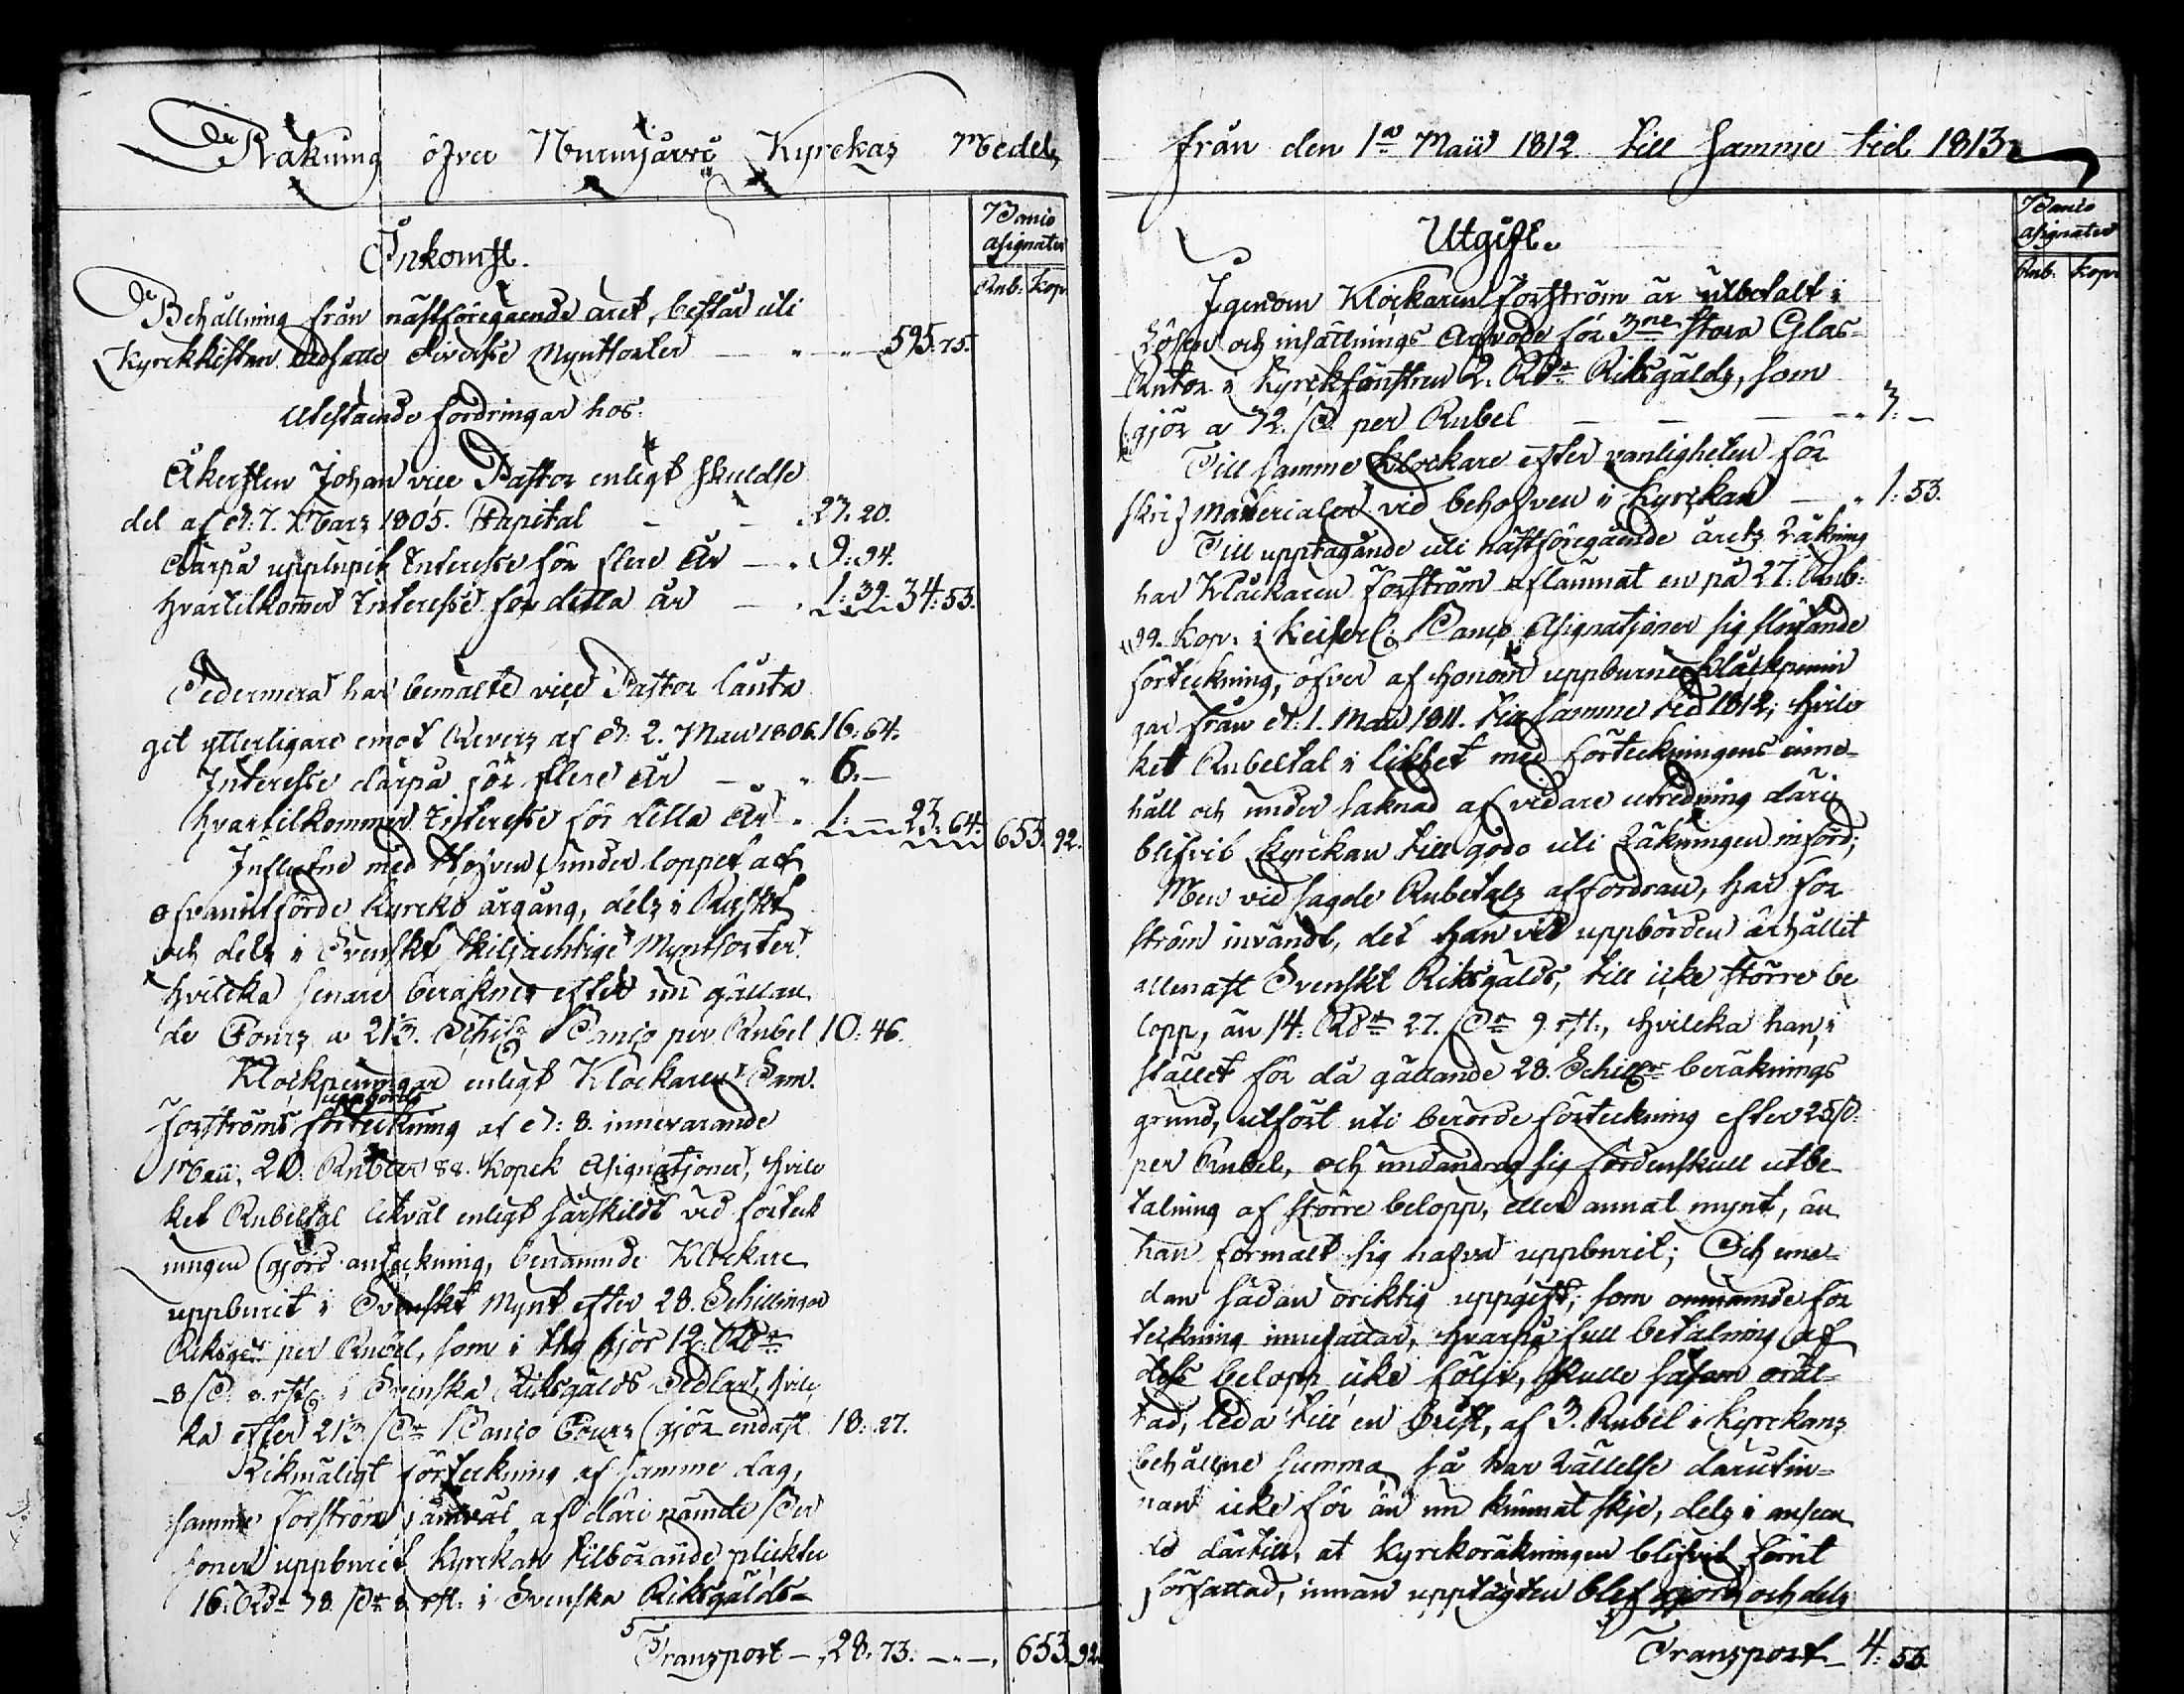 Räkning öfver Nurmijärvi Kyrckas Medel,
Inkomst.
Banco
Asignater
Rub: Kop.
Behållning från nästföregående året, består uti
Kyrckkistan diverse Myntsorter — " — " — 595. 75.
Utestående fordringar hos:
Åkerstén Johan vice Pastor enligt skuldse
del af d: 7. Mars 1805. Kapital — — " 27. 20.
därpå upplupit Interesse för flere År — " 9: 94.
hvartilkommer Interesse för detta år — " 1: 39. 34: 53.
Sedermera har bemälte vice Pastor lånta
git ytterligare emot Revers af d: 2. Maii 1806. 16: 64.
Interesse därpå för flere År — " 6: —
hvartilkommer Interesse för detta År " 1: — 23: 64. 653. 92.
Influtne med Håfven under loppet af
ofvanutförde Kyrko årgång, dels i Ryskt
och dels i Svenskt skiljacktige Myntsorter
hvilcka senare beräknas efter nu gällan
de Cours a 21 1/3. Schill Banco per Rubel 10: 46.
Klockpenningar enligt Klockaren Sam.
uppbörds
Forströms förteckning af d: 8. innevarande
Maii, 20. Rubler 88. Kopek Asignationer, hvilc
ket Rubeltal likväl enligt särskildt vid förteck
ningen gjord anteckning, benämnde Klockare
uppburit i Svenskt Mynt efter 28. Schillingar
Riksg: per Rubel, som i ett gjör 12. RD
8 s. 8. rst: i Svenska Riksgälds Sedlar, hvilc
ka efter 21 1/3 s. Banco Cours gjör endast 18: 27.
Likmäligt förteckning af samme dag,
samme Forström jämväl af däri nämde Per
soner uppburit Kyrckan tilhörande plickter
16. RD 38. s. 8. rst: i Svenska Riksgälds-
Transport — 28. 73. — " — 653. 92.
från den 1a Maii 1812. till samme tid 1813.
Utgift.
Banco
Asignater
Rub: Kop:
Igenom Klockaren Forström är utbetalt i
Lösen och insättnings Arfvode för 3ne stora Glas-
Rutor i Kyrckfönstren 2. RD Riksgälds, som
gjör a 32. s. per Rubel — — — " 3: —
Till samme Klockare efter vanligheten för
skrif Materialer vid behofven i Kyrckan — " 1: 53.
Till upptagande uti nästföregående årets Räkning
har Klåckaren Forström aflämnat en på 27. Rub:
99. Kop: i Keiserl: Banco Asignationer sig stigande
förteckning, öfver af honom uppburne Klåckpenin
gar från d: 1. Maii 1811. till samme tid 1812; hvilc
ket Rubeltal i likhet med förteckningens inne-
håll och under saknad af vidare utredning däri
blifvit Kyrckan till godo uti Räkningen införd;
Men vid sagde Rubeltals affordran, har For
ström invändt, det han vid uppbörden ärhållit
allenast Svenskt Riksgälds, till icke större be
lopp, än 14: RD 27. s. 9 rst., hvilcka han i
stället för då gällande 28. Schill: beräknings
grund, utfört uti berörde förteckning efter 25 s.
per Rubel, och undandrog sig fördenskull utbe
talning af större belopp, eller annat mynt, än
han förmält sig hafva uppburit; Och eme-
dan sådan oriktig uppgift; som omnämde för
teckning innefattar, hvarpå full betalning af
dess belopp icke följt, skulle såsom orät-
tad, leda till en brist, af 3. Rubel i Kyrckans
behållne summa så har Rättelse därutin-
nan icke för än nu kunnat skje, dels i anseen
de därtill, at Kyrckoräkningen blifvit förrut
författad, innan upptägten blef gjord, och dels
Transport — 4: 53.